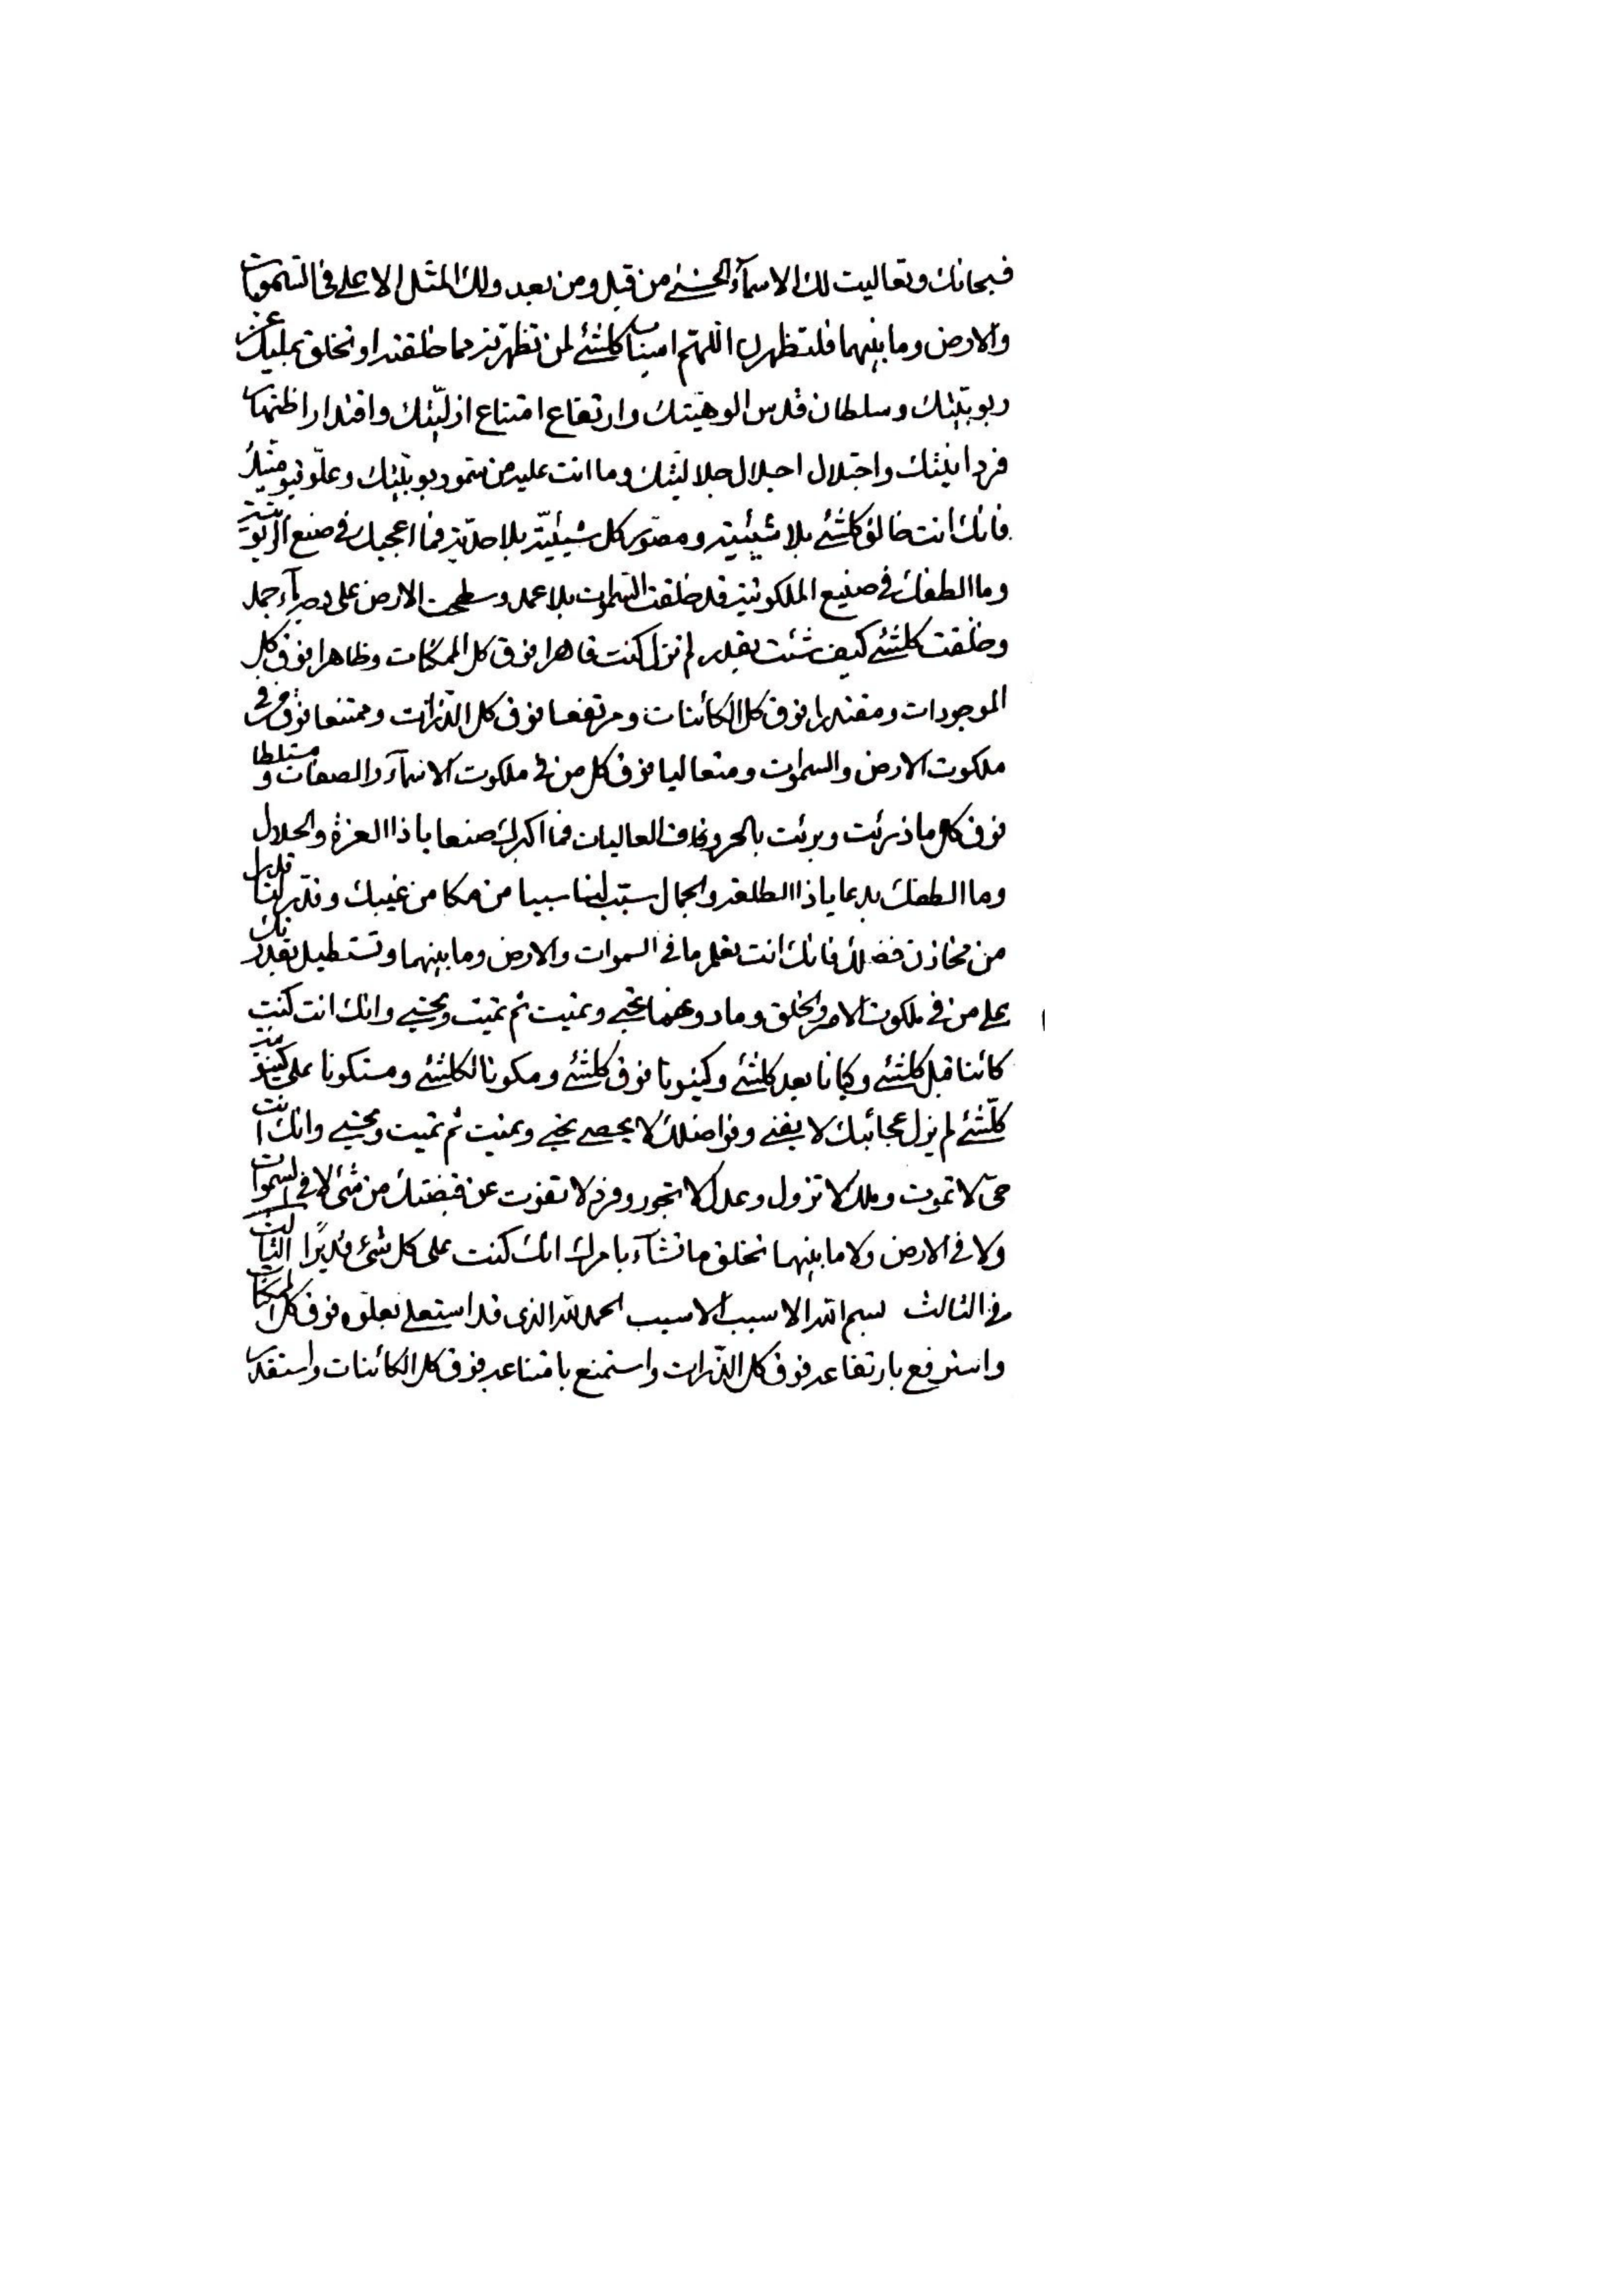 فسبحانك وتعاليت لك الاسمآء الحسنى من قبل ومن بعد ولك المثل الاعلى فى السموات
والارض وما بينهما فلتظهرن اللهم اسباب كلشئ لمن تظهرنه مما خلقته او تخلق بمليك عز
ربوبيتك وسلطان قدس الوهيتك وارتفاع امتناع ازليتك واقتدار
فردانيتك واجتلال اجلال جلاليتك وما انت عليه من سمو ربوبيتك وعلو قيوميتك
فانك انت خالق كلشئ بلا شيئية ومصور كل شيئية بلا فما اعجبك فى صنع الربوبية
وما الطفك فى صنيع الملكوتية قد خلقت السموات بلا عمد وسطحت الارض على وجه مآء جمد
وخلقت كلشئ كيف شئت بقدر لم تزل كنت قاهرا فوق كل الممكنات وظاهرا فوق كل
الموجودات ومقتدرا فوق كل الكائنات ومرتفعا فوق كل الذرات وممتنعا فوق من فى
ملكوت الارض والسموات ومتعاليا فوق كل من فى ملكوت الاسمآء والصفات و متسلطا
فوق كل ما ذرئت وبرئت بالحروفات العاليات فما اكبرك صنعا يا ذا العزة والجلال
وما الطفك بدعا يا ذا الطلعة والجمال سبب لنا سببا من مكامن غيبك وقدر لنا قدرا
من مخازن فضلك فانك انت تعلم ما فى السموات والارض وما بينهما وتستطيل بقدرتك
على من فى ملكوت الامر والخلق وما دونهما تحيى وتميت ثم تميت وتحيى وانك انت كنت
كائنا قبل كلشئ وكيانا بعد كلشئ وكينونا فوق كلشئ ومكونا لكلشئ ومستكونا على كينونية
كلشئ لم يزل عجائبك لا يفنى وفواضلك لا يحصى تحيى وتميت ثم تميت وتحيى وانك انت
حى لا تموت وملك لا تزول وعدل لا تجور وفرد لا تفوت عن قبضتك من شئ لا فى السموات
ولا فى الارض ولا ما بينهما تخلق ما تشآء بامرك انك كنت على كل شئ قديرا الثالث
فى الثالث بسم الله الاسبب الاسبب الحمد لله الذى قد استعلى بعلوه فوق كل الممكنات
واسترفع بارتفاعه فوق كل الذرات واستمنع بامتناعه فوق كل الكائنات واستقدر